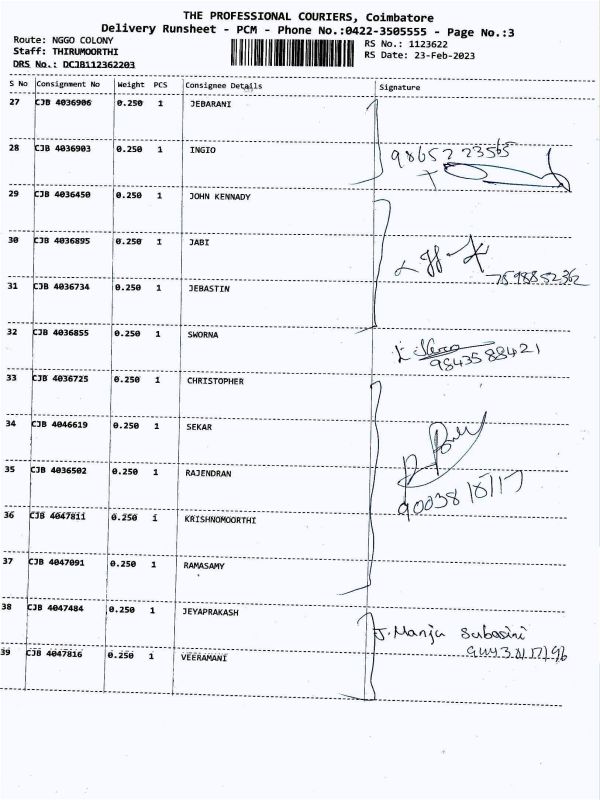 THE PROFESSIONAL COURIERS, Coimbatore
Delivery Runsheet - PCM - Phone No.:0422-3505555 - Page No.:3
Route: NGGO COLONY RS No.: 1123622
Staff: THIRUMOORTHI RS Date: 23-Feb-2023
DRS No.: DCJB112362203
S No Consignment No Weight PCS Consignee Details Signature
27 CJB 4036906 0.250 1 JEBARANI
28 CJB 4036903 0.250 1 INGIO
98652 23565
29 CJB 4036450 0.250 1 JOHN KENNADY
30 CJB 4036895 0.250 1 JABI
7598852362
31 CJB 4036734 0.250 1 JEBASTIN
32 CJB 4036855 0.250 1 SWORNA
9843588421
33 CJB 4036725 0.250 1 CHRISTOPHER
34 CJB 4046619 0.250 1 SEKAR
35 CJB 4036502 0.250 1 RAJENDRAN
36 CJB 4047811 0.250 1 KRISHNOMOORTHI
37 CJB 4047091 0.250 1 RAMASAMY
38 CJB 4047484 0.250 1 JEYAPRAKASH
J. Manju Subasini
39 CJB 4047816 0.250 1 VEERAMANI